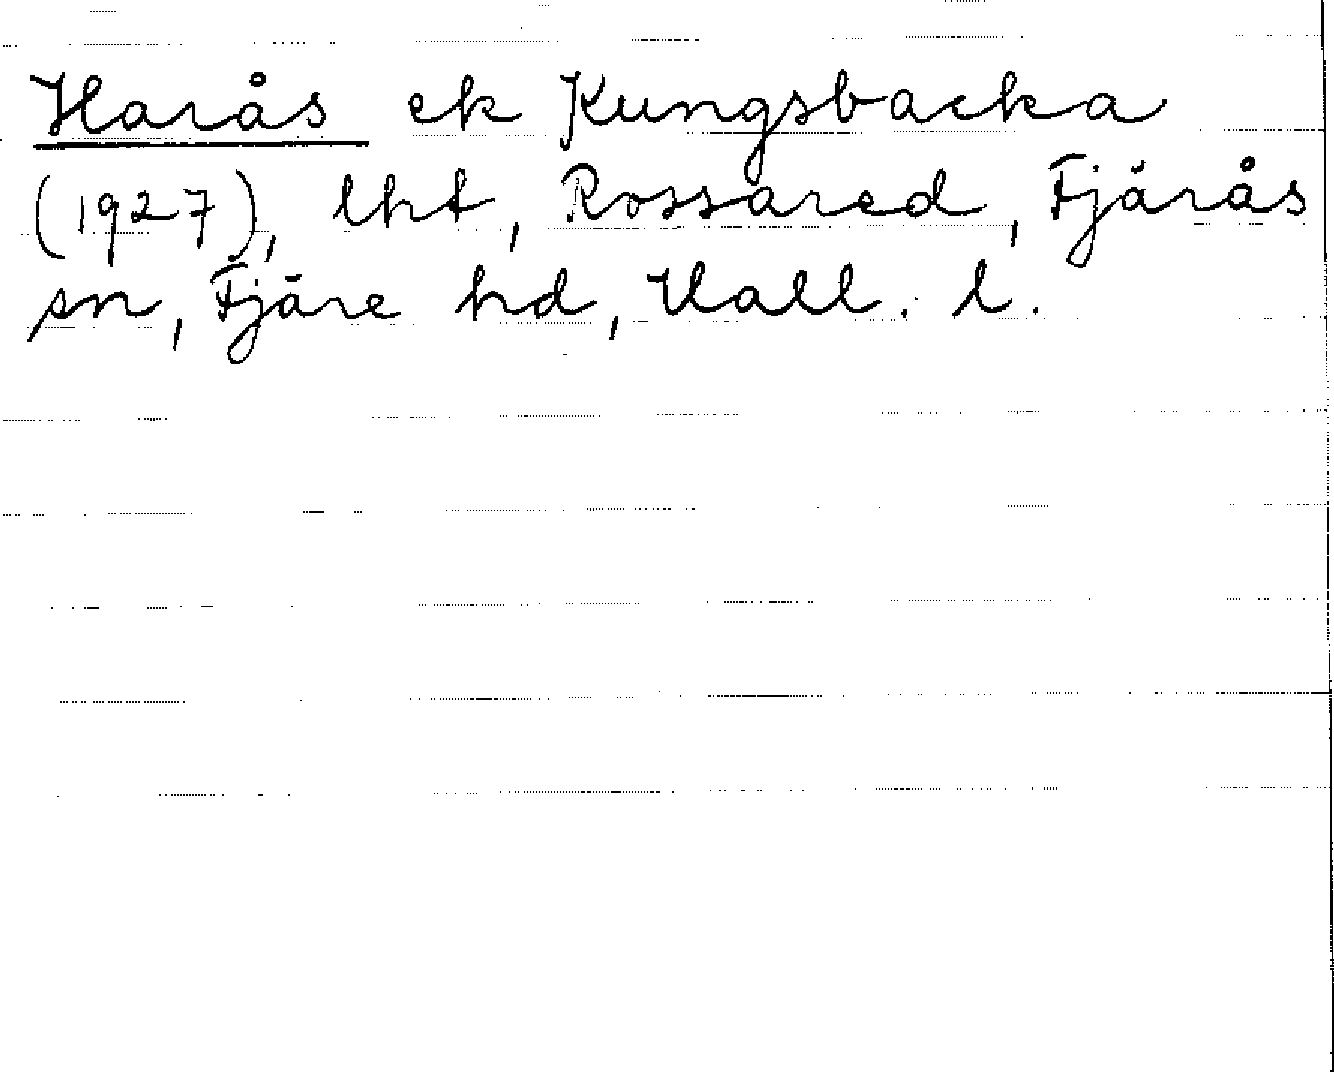 Harås ek Kungsbacka
(1927), lht, Rossared, Fjärås
sn, Fjäre hd, Hall. l.